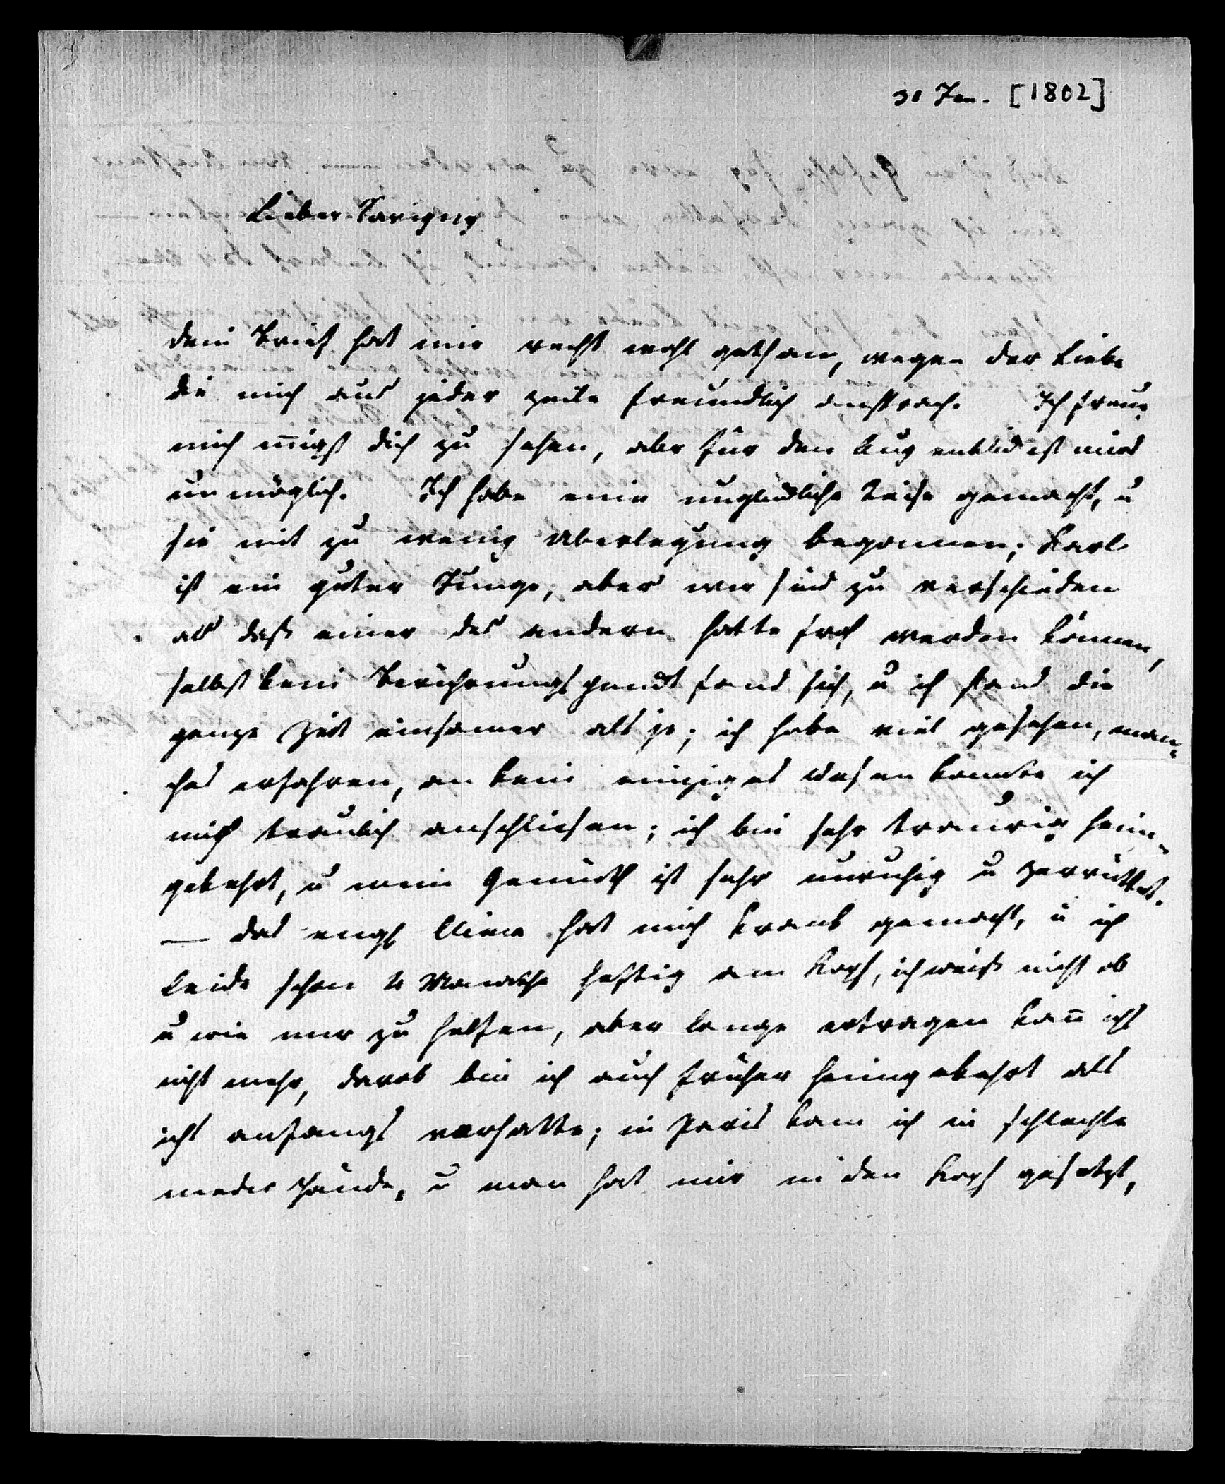 31 Jan. [1802]
Lieber Savigny
dein Brief hat mir recht wohl gethan, wegen der Liebe
die mich aus jeder Zeile freundlich ansprach. Ich freue
mich innigst dich zu sehen, aber für den Augenblick ist mirs
unmöglich. Ich habe eine unglückliche Reise gemacht, u
sie mit zu wenig Überlegung begonnen; Karl
ist ein guter Junge, aber wir sind zu verschieden
als daß einer des andern hatte froh werden können,
selbst kein Berührungspunckt fand sich, u ich stand die
ganze Zeit einsamer als je; ich habe viel gesehen, man-
ches erfahren, an kein einziges Wesen konnte ich
mich traulich anschliesen; ich bin sehr traurig heim-
gekehrt, u mein Gemüth ist sehr unruhig u zerrüttet.
— das engl Clima hat mich krank gemacht, u ich
leide schon 4 Monathe heftig am Kopf, ich weiß nicht ob
u wie mir zu helfen, aber lange ertragen kan̄ ichs
nicht mehr, darob bin ich auch früher heimgekehrt als
ichs anfangs vorhatte; in Paris kam ich in schlechte
medic Hände, u man hat mir in den Kopf gesetzt,